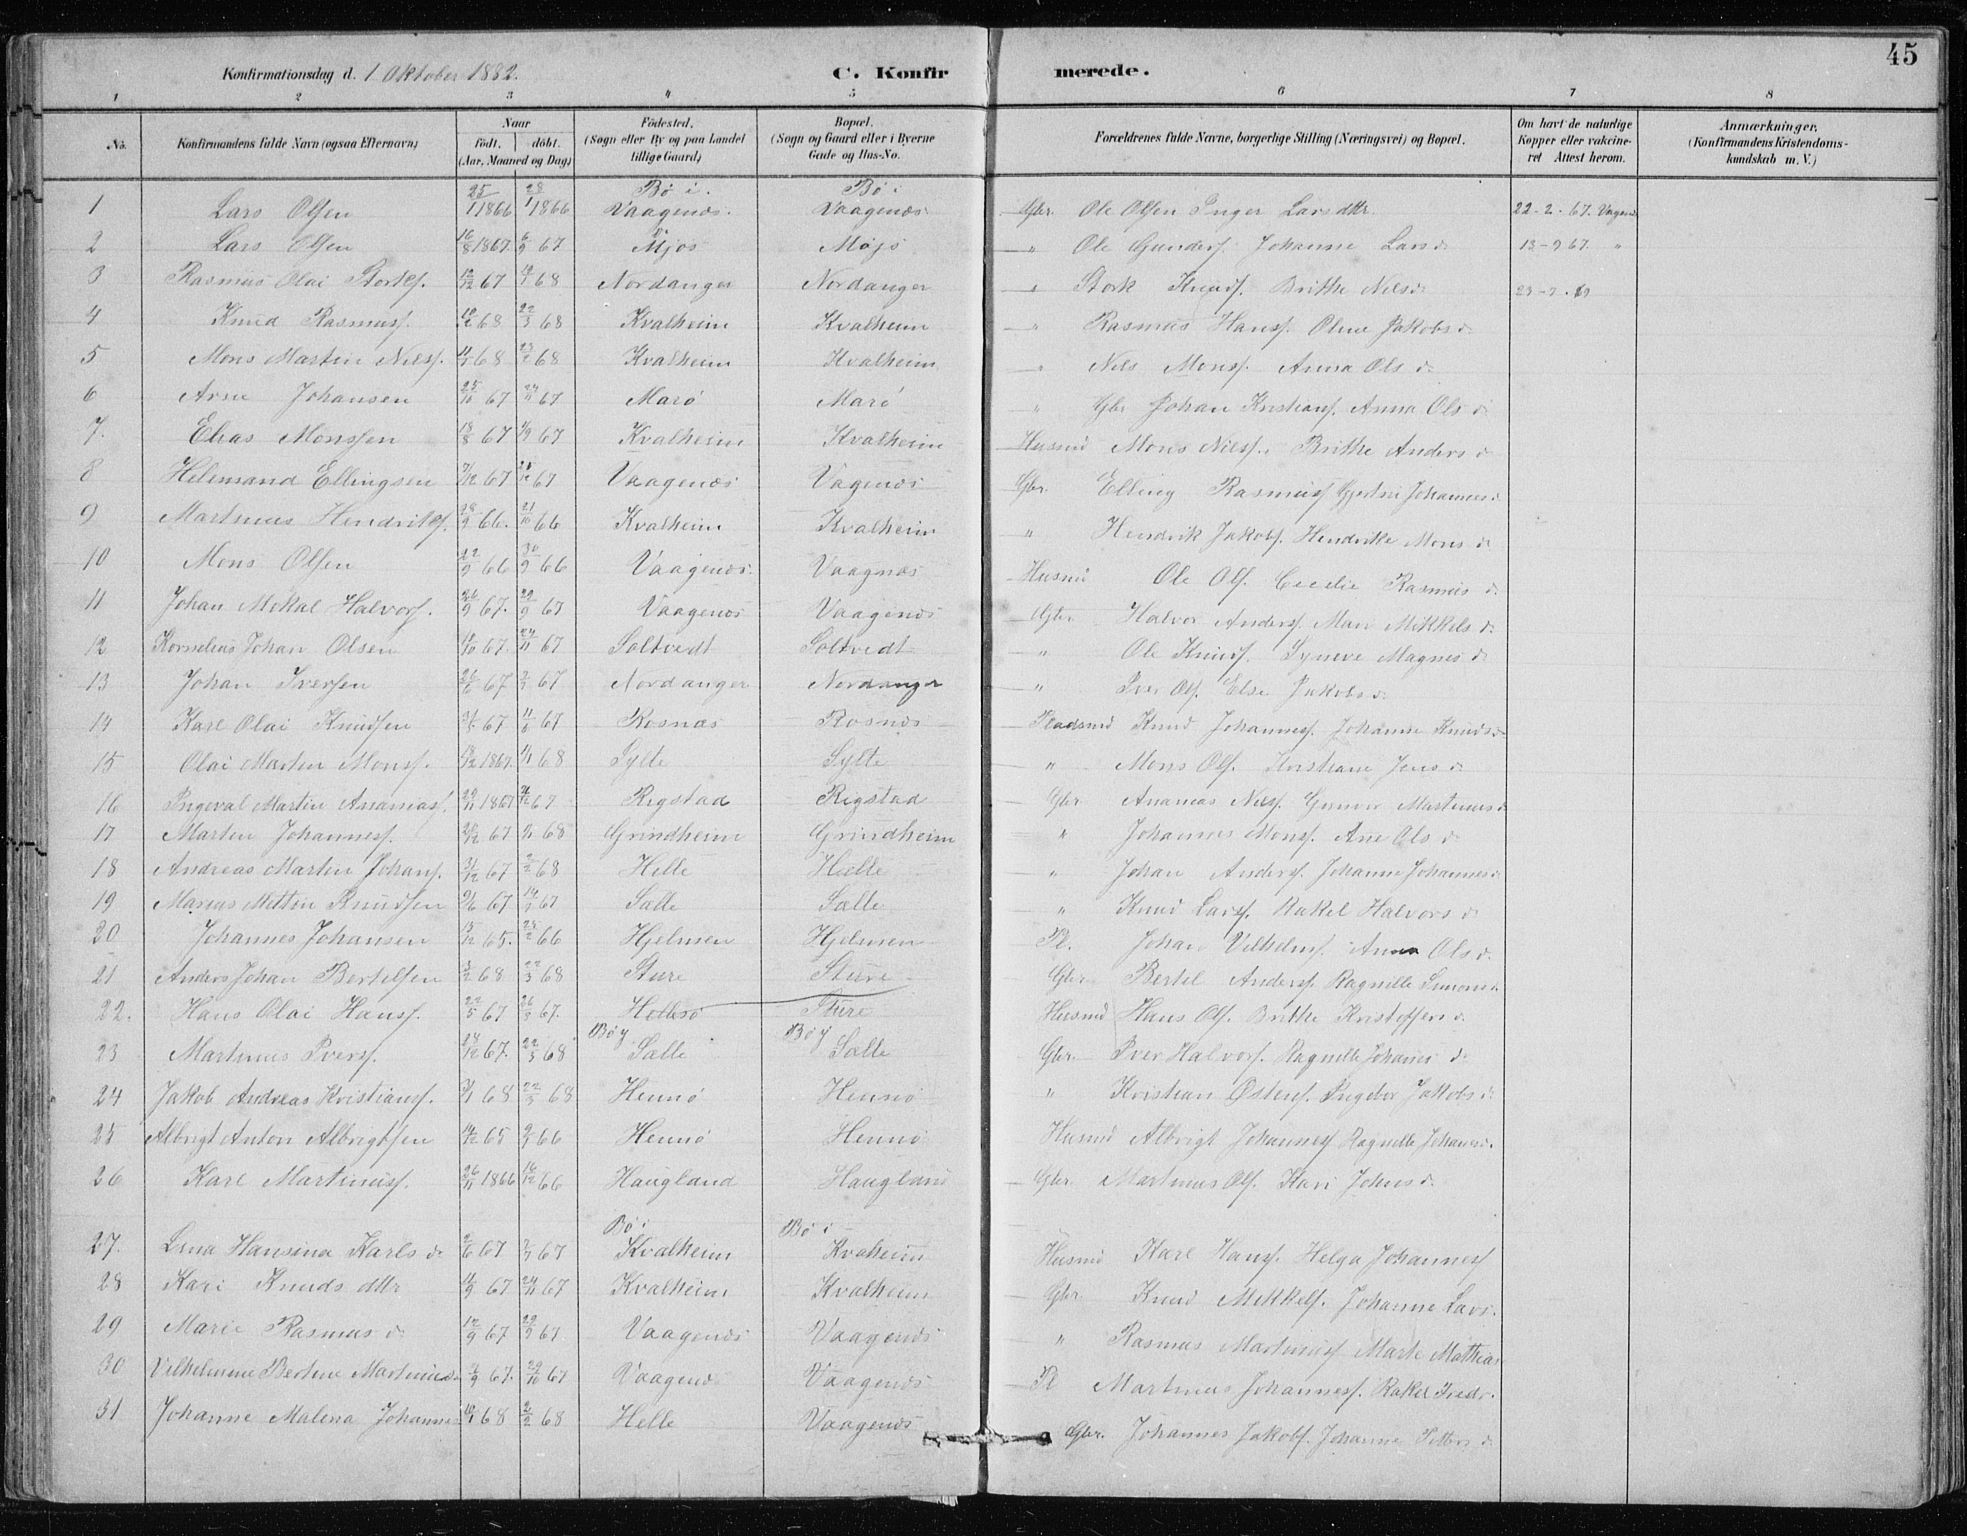 45
Konfirmationsdag d. 1 Oktober 1882.
C. Konfirmerede.
1 2 3 4 5 6 7 8
No.
Konfirmandens fulde Navn (ogsaa Efternavn)
Naar
födt. döbt.
(Aar, Maaned og Dag)
Födested.
(Sogn eller By og paa Landet
tillige Gaard)
Bopæl.
(Sogn og Gaard eller i Byerne
Gade og Hus-No.
Forældrenes fulde Navne, borgerlige Stilling (Næringsvei) og Bopæl.
Om havt de naturlige
Kopper eller vakcine-
ret Attest herom.
Anmærkninger.
(Konfirmandens Kristendoms-
kundskab m. V.)
Bø i Bø i
1 Lars Olsen 25/1 1866 28/1 1866 Vaagenæs. Vaagenæs Gbr. Ole Olsen Inger Larsdttr. 22-2-67.
2 Lars Olsen 16/8 1867. 6/9 67 Mjøs Mjøs " Ole Gunders. Johanne Larsd. 13-9 67. "
3 Rasmus Olai Storks. 12/12 67 68 Nordanger Nordanger " Stork Knuds. Brithe Nilsd.
4 Knud Rasmuss. 10/2 68 22/3 68 Kvalheim Kvalheim " Rasmus Hanss. Oline Jakobsd.
5 Mons Martin Nilss. 68 23/2 68 Kvalheim Kvalheim " Nils Monss. Anna Olsd.
6 Arne Johansen 25/10 67 24/11 67 Marø Marø " Gbr Johan Kristians. Anna Olsd
7. Elias Monssen 18/8 67 67 Kvalheim Kvalheim Husmd Mons Nilss. Brithe Andersd
8 Helemand Ellingsen 7/12 67 67 Vaagenæs Vagenæs Gbr. Elling Rasmuss Johannesd
9 Martinus Hendriks. 28/9 66. 21/10 66 Kvalheim Kvalheim " Hendrik Jakobs. Hendrike Monsd
10 Mons Olsen 22/9 66 30/9 66 Vaagenæs. Vaagnæs Husmd Ole Ols. Cecilie Rasmusd
11 Johan Mikal Halvors. 26/9 67. 29/9 67 Vaagenæs Vaagenæs Gbr. Halvor Anders. Mari Mikkelsd.
12 Kornelius Johan Olsen 67. 24/11 67 Soltvedt Soltvedt " Ole Knuds. Syneve Magnesd
13 Johan Iversen 67 67 Nordanger Nordanger " Iver Ols. Else Jakobsd
14 Karl Olai Knudsen 67 67 Rosnæs Rosnæs Pladsmd Knud Johanness. Johanne Knudsd
15 Olai Martin Monss. 18/12 1867. 68 Sylte Sylte " Mons Ols. Kristiane Jensd
16 Ingeval Martin Ananiass. 29/11 1867 67 Rigstad Rigstad Gbr Ananias Nilss. Martinusd
17 Martin Johanness. 67 68 Grindheim Grindheim " Johannes Monss. Ane Olsd
18 Andreas Martin Johans. 31/12 67 2/2 68 Helle Helle " Johan Anders. Johanne Johannesd
19 Marius Mitton Knudsen 67 67 Salle Salle " Knud Larss. Rakel Halvorsd
20 Johannes Johansen 13/12 65. 66 Hjelmen Hjelmen Pl. Johan Vilhelms. Anna Olsd.
21 Anders Johan Bertelsen 68 22/3 68 Sture Sture Gbr Bertel Anderss. Ragnille Simonsd
22. Hans Olai Hanss. 22/5 67 67. Sture Husmd Hans Ols. Brithe Kristoffersd
Bø y Bø y
23 Martinus Ivers. 24/12 67. 22/3 68 Salle Salle Gbr. Iver Halvors. Ragnille Johansd.
24 Jakob Andreas Kristians. 68 22/3 68 Hennø Hennø " Kristian Østens. Ingebor Jakobsd
25 Albrigt Anton Albrigtsen 14/12 65 66 Hennø Hennø Husmd Albrigt Johanness Ragnille Johansd.
26 Karl Martinuss. 26/11 1866 16/12 66 Haugland Haugland Gbr. Martinus Ols. Kari Johnsd.
Bø i Bø i
27. Lina Hansina Karlsd. 67 67 Kvalheim Kvaheim Husmd Karl Hanss. Helga Johanness
28 Kari Knudsdttr 67 24/11 67 Kvalheim Kvalheim Gbr Knud Mikkels. Johanne Lars.
29 Marie Rasmusd 12/9 67 29/9 67 Vaagenæs Vaagenæs " Rasmus Martinuss Marte Mathias
30 Vilhelmine Bertine Martinusd. 67. 67 Vaagenæs Vaagenæs Pl Martinus Johanness. Rakel
31 Johanne Malena Johannes 68 2/2 68 Helle Vaagenæs Gbr. Johannes Jakobs. Johanne Pettersd